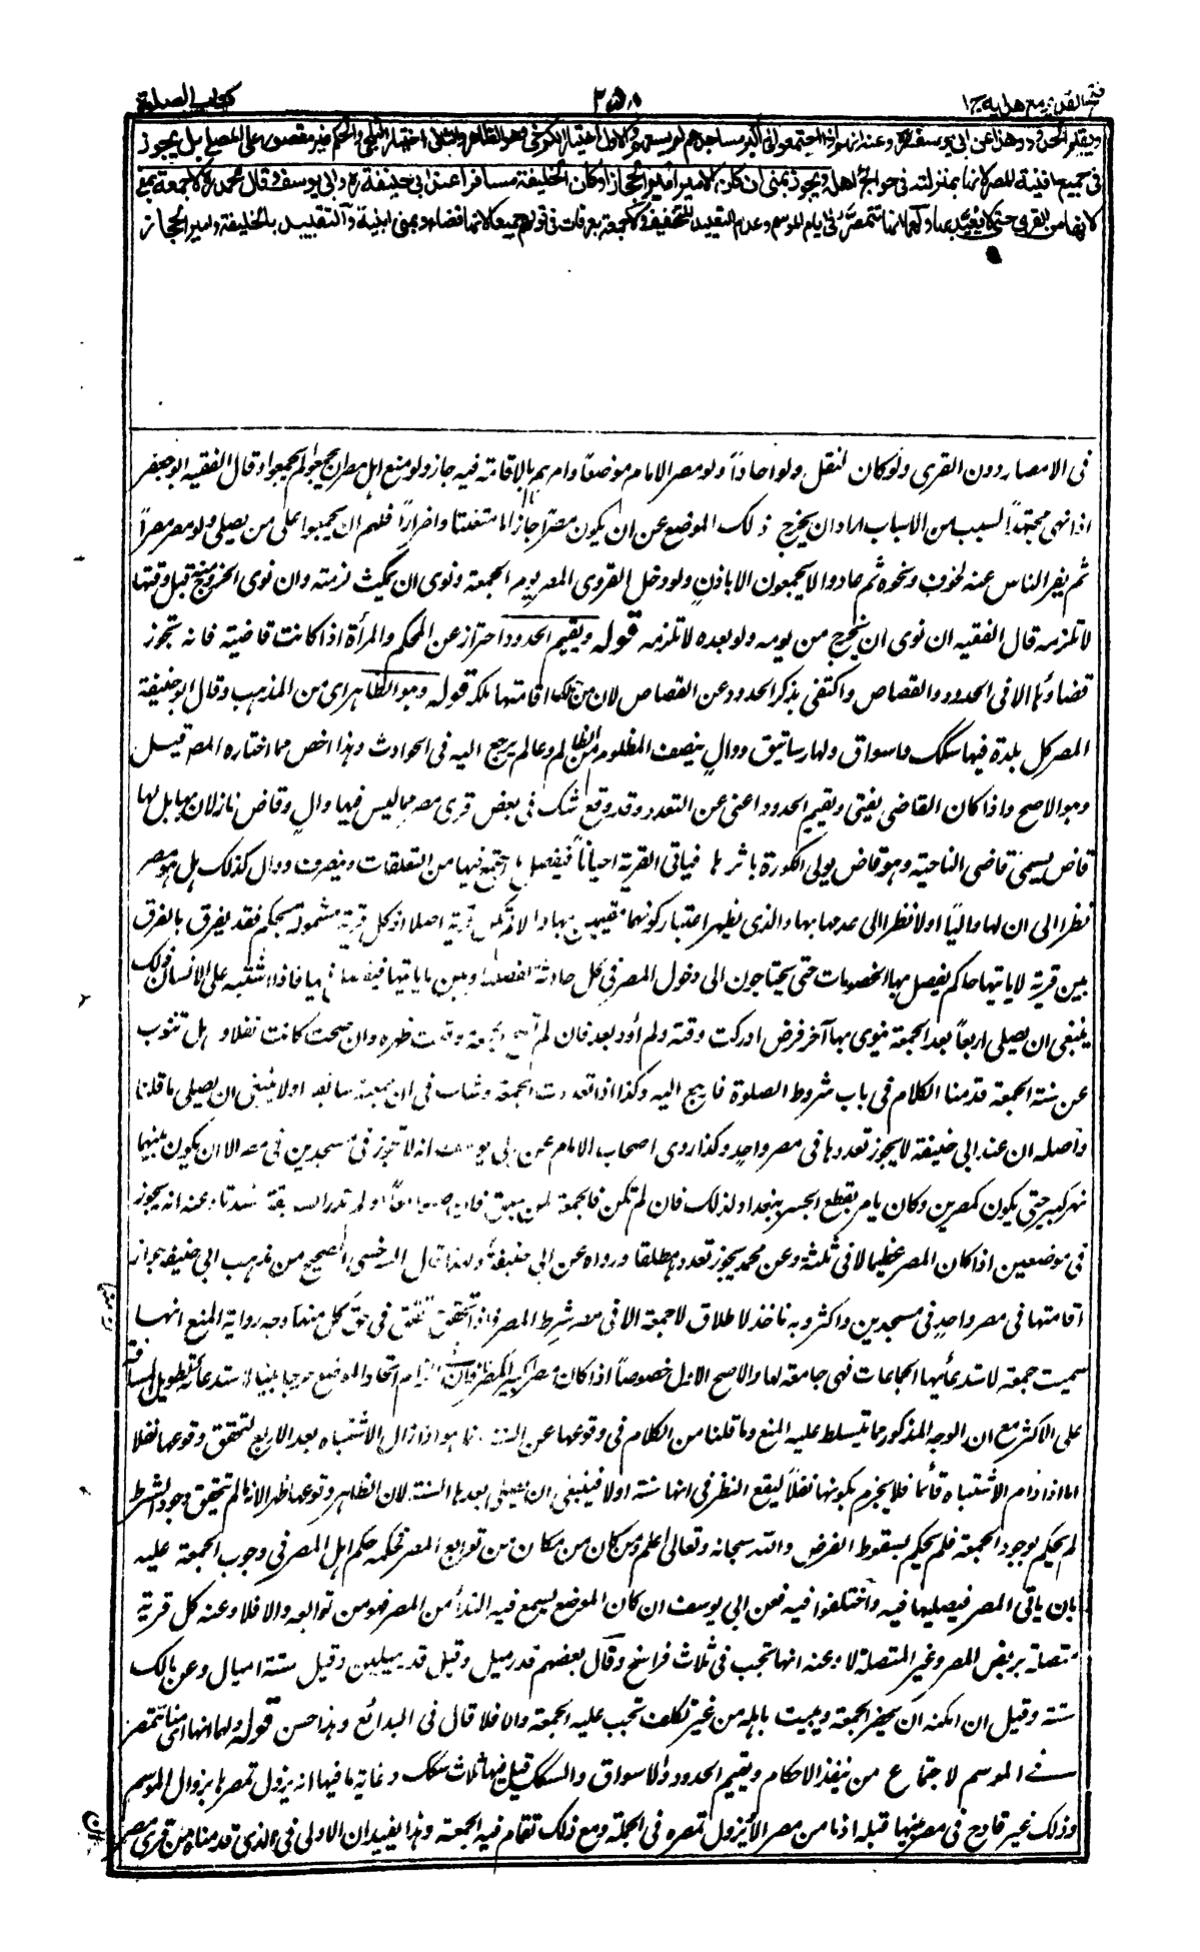 فتح القدير مع هدايه ج۱
۲۵۸
كتاب الصلوة
ويقيم الحدود وهذا عن ابي يوسف وعنه انهم اذا اجتمعوا في اكبر مساجدهم لم يسعهم والاول اختيار الكرخي وهو الظاهر والثاني اختيار الثلجي والحكم غير مقصور على المصلى بل يجوز
في جميع افنية المصر لانها بمنزلته في حوائج اهله ويجوز بمنى ان كان الامير امير الحجاز او كان الخليفة مسافرا عند ابي حنيفة وابي يوسف وقال محمد لا جمعة بمنى
لانها من القرى حتى لا يعيد بها ولهما انها تتمصر في ايام الموسم وعدم التعييد للتخفيف ولا جمعة بعرفات في قولهم جميعا لانها فضاء وبمنى ابنية والتقييد بالخليفة وامير الحجاز
فى الامصار دون القرى ولو كان لنقل ولو احادًا ولو مصر الامام موضعًا وامرهم بالاقامة فيه جاز ولو منع اهل مصر ان يجمعوا لم يجمعوا وقال الفقيه ابو جعفر
اذا نهى مجتهدًا لسبب من الاسباب اراد ان يخرج ذلك الموضع عن ان يكون مصرًا جاز اما متعنتا واضرارًا فلهم ان يجمعوا على من يصلى ولو مصر مصرًا
ثم نفر الناس عنه لخوف ونحوه ثم عادوا لا يجمعون الا باذن ولو دخل القروى المصر يوم الجمعة ونوى ان يمكث لزمته وان نوى الخروج منه قبل وقتها
لا تلزمه قال الفقيه ان نوى ان يخرج من يومه ولو بعده لا تلزمه قوله ويقيم الحدود احتراز عن المحكم والمرأة اذا كانت قاضية فانه تجوز
قضاؤها الا فى الحدود والقصاص واكتفى بذكر الحدود عن القصاص لان من ملك اقامتها ملكه قوله وهو الظاهر اى من المذهب وقال ابو حنيفة
المصر كل بلدة فيها سكك واسواق ولها رساتيق ووالٍ ينصف المظلوم من الظالم وعالم يرجع اليه فى الحوادث وهذا اخص مما اختاره المصـ قيل
وهو الاصح واذا كان القاضى يفتى ويقيم الحدود اغنى عن التعدد وقد وقع شك فى بعض قرى مصر مما ليس فيها والٍ وقاض نازلان بها بل لها
قاض يسمى قاضى الناحية وهو قاض يولى الكورة باسرها فياتى القرية احيانًا فيفصل ما اجتمع فيها من التعلقات وينصرف ووال كذلك هل هو مصر
نظرا الى ان لها واليًا او لا نظرا الى عدمهما بها والذى يظهر اعتبار كونهما مقيمين بها والا لم تكن قرية اصلا اذ كل قرية مشمولة بحكم فقد يفرق بالفرق
بين قرية لا ياتيها حاكم يفصل بها الخصومات حتى يحتاجون الى دخول المصر فى كل حادثة لفصلها وبين ما ياتيها فيفصل فيها فاذا اشتبه على الانسان ذلك
ينبغى ان يصلى اربعًا بعد الجمعة ينوى بها آخر فرض ادركت وقته ولم أؤد بعد فان لم تصح الجمعة وقعت ظهره وان صحت كانت نفلا وهل تنوب
عن سنة الجمعة قدمنا الكلام فى باب شروط الصلوة فارجع اليه وكذا اذا تعددت الجمعة وشك فى ان جمعته سابقة او لا ينبغى ان يصلى ما قلنا
واصله ان عند ابى حنيفة لا يجوز تعددها فى مصر واحد وكذا روى اصحاب الاملاء عن ابى يوسف انه لا تجوز فى مسجدين فى مصر الا ان يكون بينهما
نهر كبير حتى يكون كمصرين وكان يامر بقطع الجسر ببغداد لذلك فان لم تكن فالجمعة لمن سبق فان صلوا معًا او لم تدر السابقة فسدتا وعنه انه يجوز
فى موضعين اذا كان المصر عظيما لا فى ثلثة وعن محمد يجوز تعددها مطلقا ورواه عن ابى حنيفة ولهذا قال السرخسى الصحيح من مذهب ابى حنيفة جواز
اقامتها فى مصر واحد فى مسجدين واكثر وبه ناخذ لاطلاق لا جمعة الا فى مصر شرط المصر فاذا تحقق تحقق فى حق كل منها وجه رواية المنع انها
سميت جمعة لاستدعائها الجماعات فهى جامعة لها والاصح الاول خصوصًا اذا كان مصر كبير فان الزام اتحاد الموضع حرجا بينا لاستدعائه تطويل المسافة
على الاكثر مع ان الوجه المذكور مما يتسلط عليه المنع وما قلنا من الكلام فى وقوعها عن السنة انما هو اذا زال الاشتباه بعد الاربع لتحقق وقوعها نفلا
اما اذا دام الاشتباه قائما فلا يجزم بكونها نفلًا ليقع النظر فى انها سنة او لا فينبغى ان يصلى بعدها السنة لان الظاهر وقوعها ظهرا لانه ما لم يتحقق وجود الشرط
لم يحكم بوجود الجمعة فلم يحكم بسقوط الفرض والله سبحانه وتعالى اعلم ومن كان من مكان من توابع المصر فحكمه حكم اهل المصر فى وجوب الجمعة عليه
بان ياتى المصر فيصليها فيه واختلفوا فيه فعن ابى يوسف ان كان الموضع يسمع فيه النداء من المصر فهو من توابعه والا فلا وعنه كل قرية
متصلة بربض المصر وغير المتصلة لا وعنه انها تجب فى ثلاث فراسخ وقال بعضهم قدر ميل وقيل قدر ميلين وقيل ستة اميال وعن مالك
ستة وقيل ان امكنه ان يحضر الجمعة ويبيت باهله من غير تكلف تجب عليه الجمعة والا فلا قال فى البدائع وهذا حسن قوله ولهما انها اى منى تتمصر
فى الموسم لاجتماع من ينفذ الاحكام ويقيم الحدود والاسواق والسكك قيل فيها ثلاث سكك وغاية ما فيها انه يزول تمصرها بزوال الموسم
وذلك غير قادح فى مصريتها قبله اذ ما من مصر الا يزول تمصره فى الجملة ومع ذلك تقام فيه الجمعة وهذا يفيد ان الاولى فى الذى قدمناه من قرى مصر